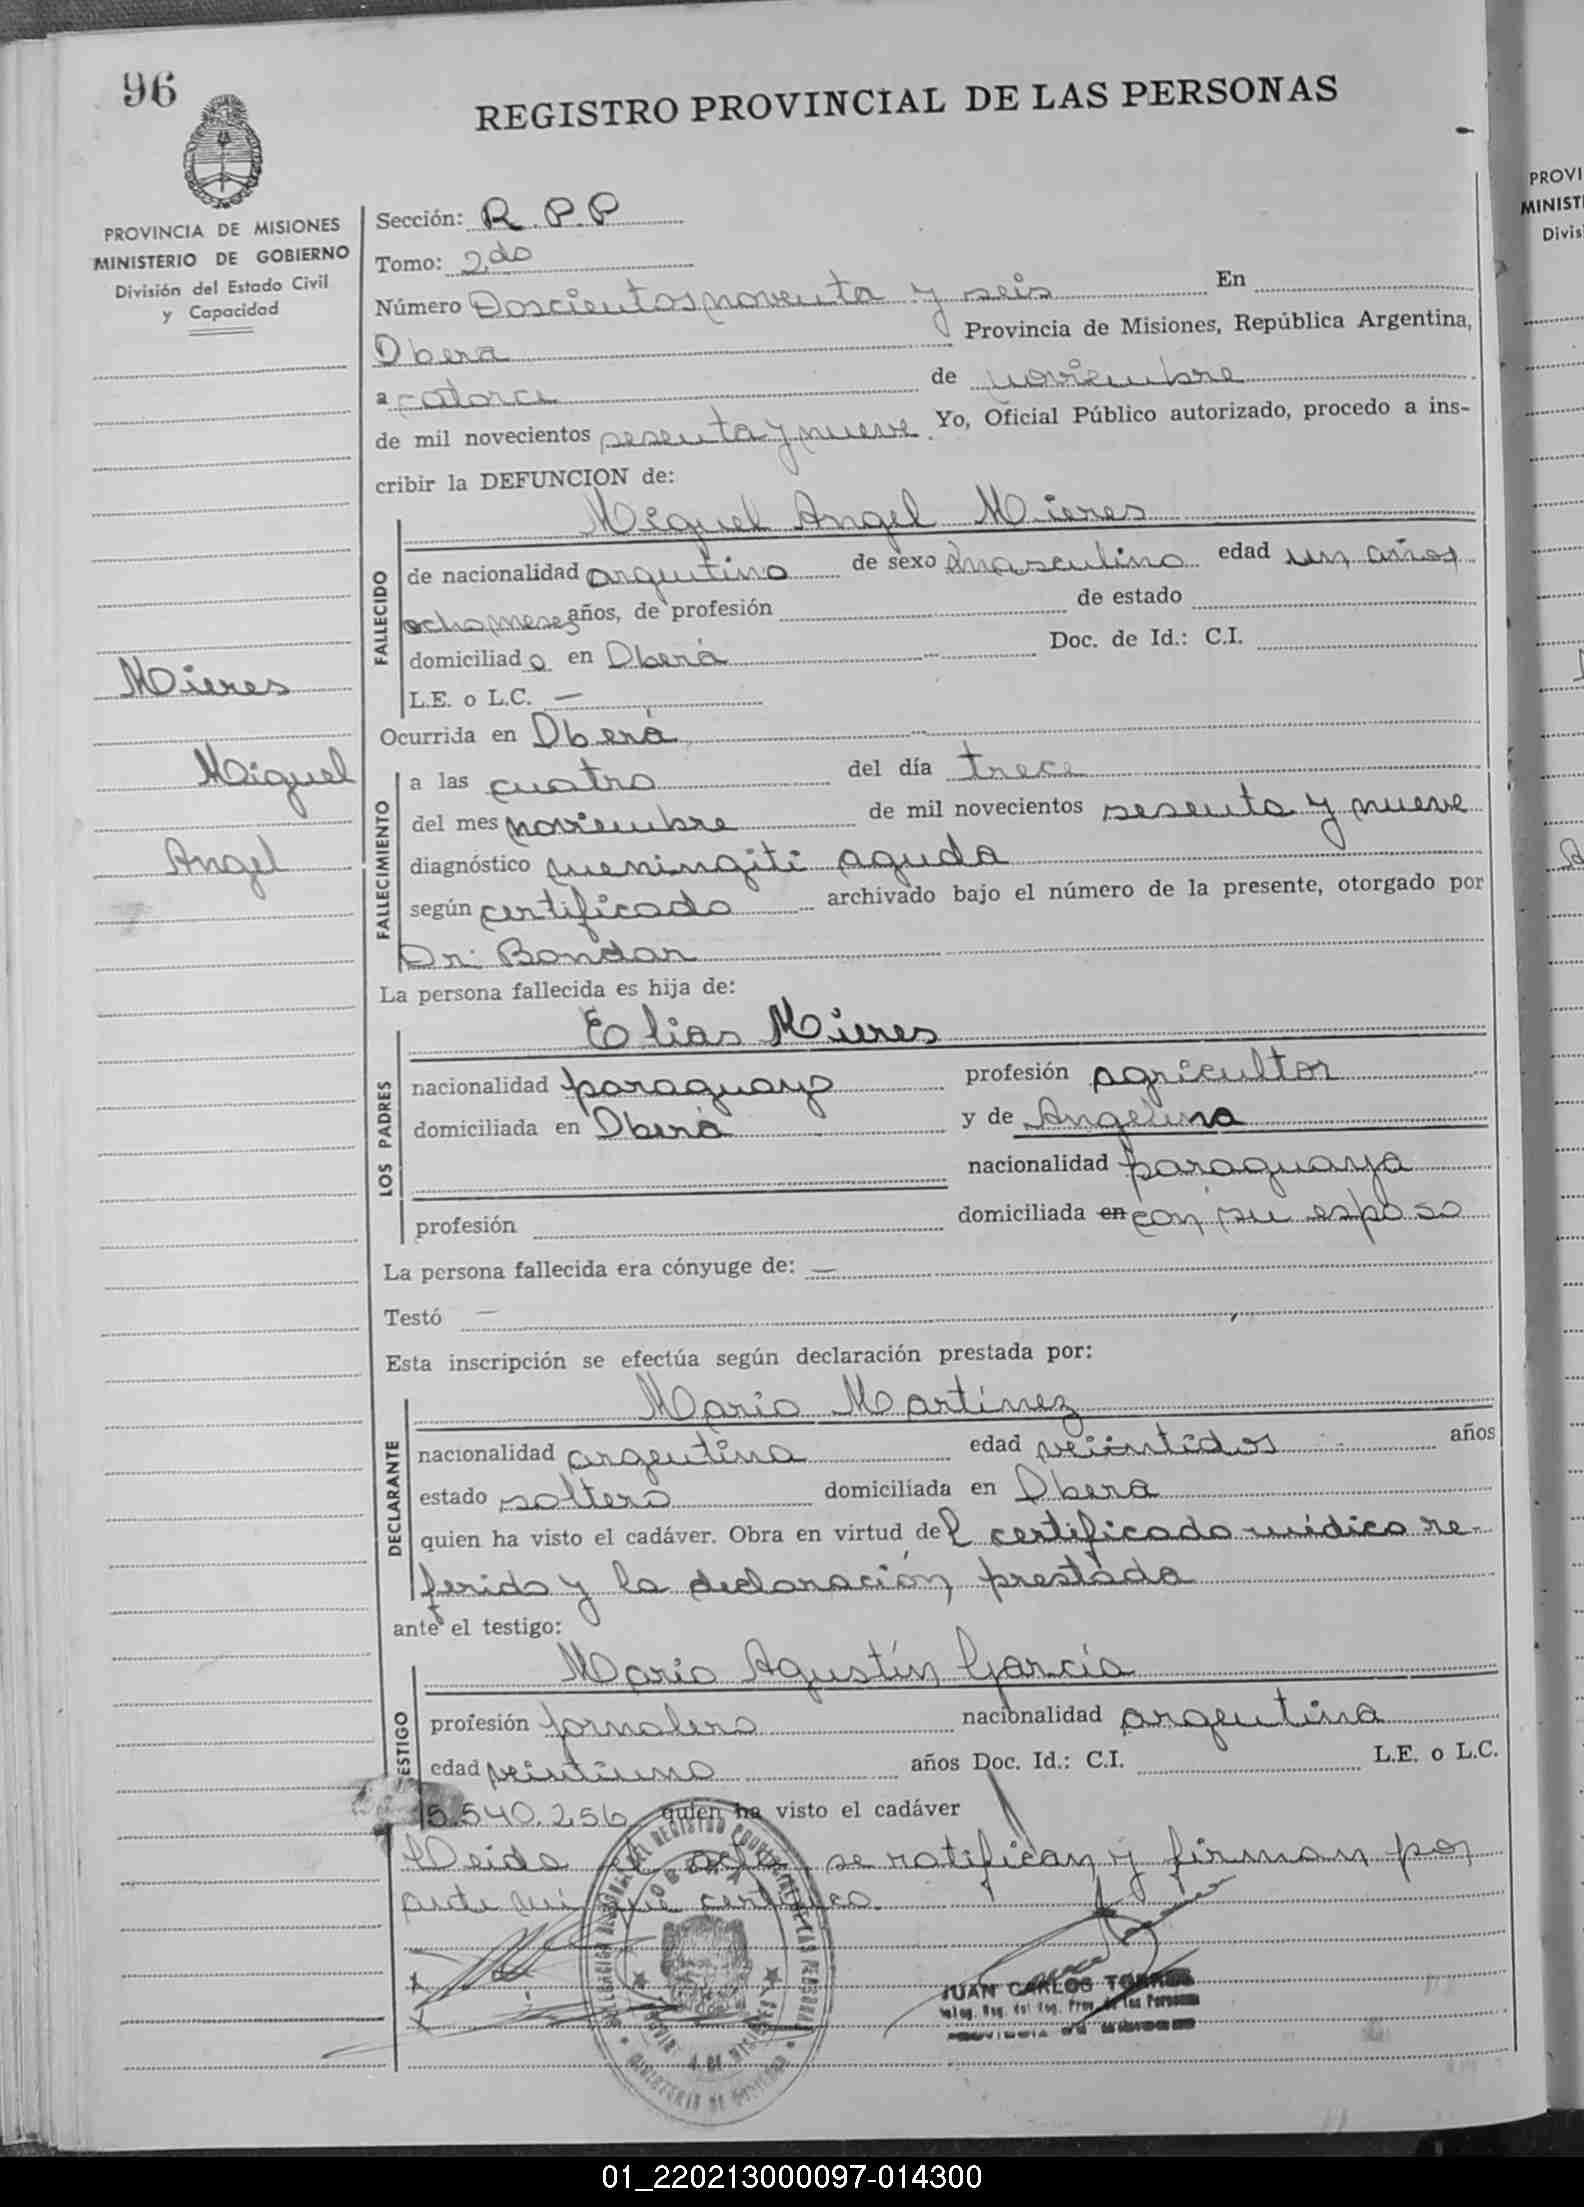 96
REGISTRO PROVINCIAL DE LAS PERSONAS
PROVINCIA DE MISIONES
MINISTERIO DE GOBIERNO
División del Estado Civil
y Capacidad
Sección: R.P.P
Tomo: 2.do
Número Doscientos noventa y seis En
Obera Provincia de Misiones, República Argentina,
a catorce de noviembre
de mil novecientos sesenta y nueve. Yo, Oficial Público autorizado, procedo a ins-
cribir la DEFUNCION de:
Miguel Angel Mieres
FALLECIDO
de nacionalidad argentino de sexo masculino edad un años
ocho meses años, de profesión de estado
domiciliado en Oberá Doc. de Id.: C.I.
L.E. o L.C. —
Mieres
Miguel
Angel
Ocurrida en Oberá
FALLECIMIENTO
a las cuatro del día trece
del mes noviembre de mil novecientos sesenta y nueve
diagnóstico meningiti aguda
según certificado archivado bajo el número de la presente, otorgado por
Dr. Bondar
La persona fallecida es hija de:
Elias Mieres
LOS PADRES
nacionalidad paraguayo profesión agricultor
domiciliada en Oberá y de Angelina
nacionalidad paraguaya
profesión domiciliada en con su esposo
La persona fallecida era cónyuge de: —
Testó —
Esta inscripción se efectúa según declaración prestada por:
Mario Martínez
DECLARANTE
nacionalidad argentina edad veintidos años
estado soltero domiciliada en Obera
quien ha visto el cadáver. Obra en virtud del certificado médico re-
ferido y la declaración prestada
ante el testigo:
Mario Agustín García
ESTIGO
profesión jornalero nacionalidad argentina
edad veintiuno años Doc. Id.: C.I. L.E. o L.C.
5.540.256 quien ha visto el cadáver
Leida el acta, se ratifican y firman por
ante mi que certifico.
x
x
JUAN CARLOS TORRES
PROVINCIA DE MISIONES
PROVI
MINIST
Divis
01_220213000097-014300